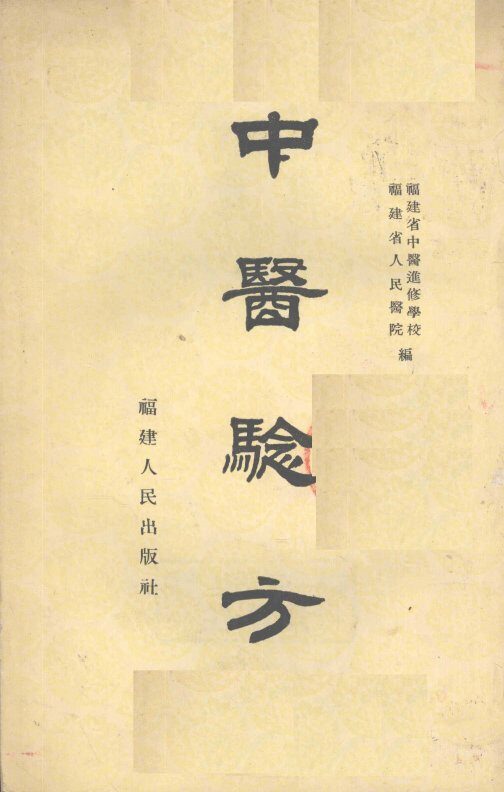 福建省中醫進修學校
福建省人民醫院
編
中醫騐方
福建人民出版社